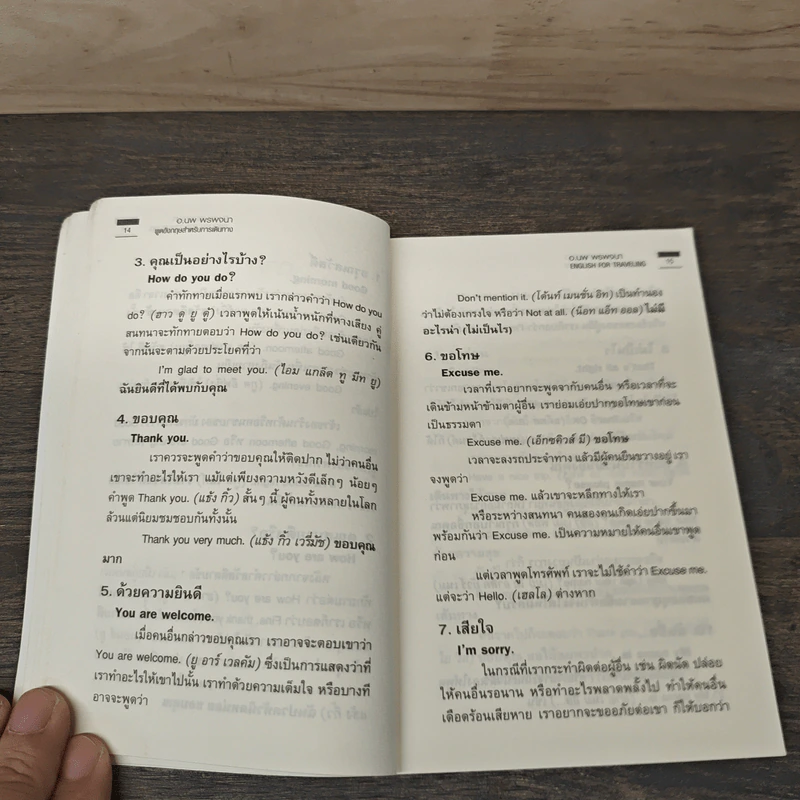 14
อ.นพ พรพจนา
พูดอังกฤษสำหรับการเดินทาง
3. คุณเป็นอย่างไรบ้าง?
How do you do?
คำทักทายเมื่อแรกพบ เรากล่าวคำว่า How do you
do? (ฮาว ดู ยู ดู๋) เวลาพูดให้เน้นน้ำหนักที่หางเสียง คู่
สนทนาจะทักทายตอบว่า How do you do? เช่นเดียวกัน
จากนั้นจะตามด้วยประโยคที่ว่า
I'm glad to meet you. (ไอม แกล็ด ทู มีท ยู)
ฉันยินดีที่ได้พบกับคุณ
4. ขอบคุณ
Thank you.
เราควรจะพูดคำว่าขอบคุณให้ติดปาก ไม่ว่าคนอื่น
เขาจะทำอะไรให้เรา แม้แต่เพียงความหวังดีเล็กๆ น้อยๆ
คำพูด Thank you. (แธ้ง กิ้ว) สั้นๆ นี้ ผู้คนทั้งหลายในโลก
ล้วนแต่นิยมชมชอบกันทั้งนั้น
Thank you very much. (แธ้ง กิ้ว เวรี่มัช) ขอบคุณ
มาก
5. ด้วยความยินดี
You are welcome.
เมื่อคนอื่นกล่าวขอบคุณเรา เราอาจจะตอบเขาว่า
You are welcome. (ยู อาร์ เวลคัม) ซึ่งเป็นการแสดงว่าที่
เราทำอะไรให้เขาไปนั้น เราทำด้วยความเต็มใจ หรือบางที
อาจจะพูดว่า
อ.นพ พรพจนา
ENGLISH FOR TRAVELING
15
Don't mention it. (โด้นท์ เมนชั่น อิท) เป็นทำนอง
ว่าไม่ต้องเกรงใจ หรือว่า Not at all. (น็อท แอ็ท ออล) ไม่มี
อะไรน่า (ไม่เป็นไร)
6. ขอโทษ
Excuse me.
เวลาที่เราอยากจะพูดจากับคนอื่น หรือเวลาที่จะ
เดินข้ามหน้าข้ามตาผู้อื่น เราย่อมเอ่ยปากขอโทษเขาก่อน
เป็นธรรมดา
Excuse me. (เอ๊กซคิวส์ มี) ขอโทษ
เวลาจะลงรถประจำทาง แล้วมีผู้คนยืนขวางอยู่ เรา
จงพูดว่า
Excuse me. แล้วเขาจะหลีกทางให้เรา
หรือระหว่างสนทนา คนสองคนเกิดเอ่ยปากขึ้นมา
พร้อมกันว่า Excuse me. เป็นความหมายให้คนอื่นเขาพูด
ก่อน
แต่เวลาพูดโทรศัพท์ เราจะไม่ใช้คำว่า Excuse me.
แต่จะว่า Hello. (เฮลโล) ต่างหาก
7. เสียใจ
I'm sorry.
ในกรณีที่เรากระทำผิดต่อผู้อื่น เช่น ผิดนัด ปล่อย
ให้คนอื่นรอนาน หรือทำอะไรพลาดพลั้งไป ทำให้คนอื่น
เดือดร้อนเสียหาย เราอยากจะขออภัยต่อเขา ก็ให้บอกว่า